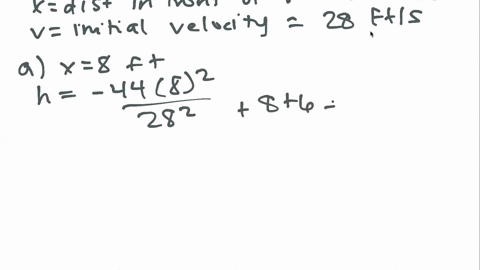 x=dist in
v= initial velocity = 28 ft/s
a) x=8 ft
h = -44(8)²/28² + 8+6 =